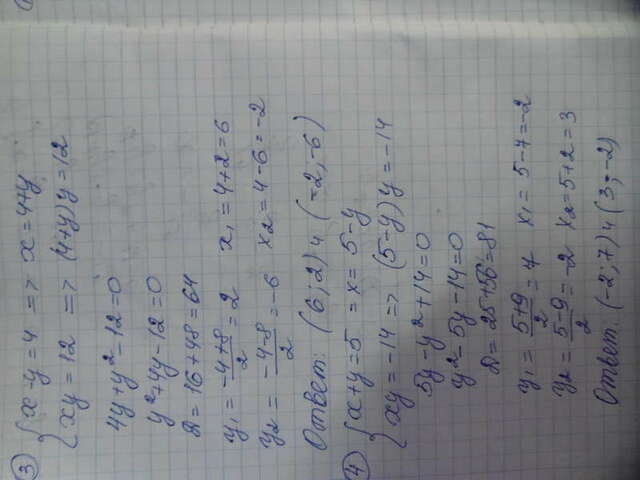 ③ { x-y=4 => x=4+y
{ xy=12 => (4+y)y=12
4y+y²-12=0
y²+4y-12=0
D=16+48=64
y₁=-4+8/2=2 x₁=4+2=6
y₂=-4-8/2=-6 x₂=4-6=-2
Ответ: (6;2) и (-2;-6)
④ { x+y=5 =x=5-y
{ xy=-14 => (5-y)y=-14
5y-y²+14=0
y²-5y-14=0
D=25+56=81
y₁=5+9/2=7 x₁=5-7=-2
y₂=5-9/2=-2 x₂=5+2=3
Ответ: (-2;7) и (3;-2)